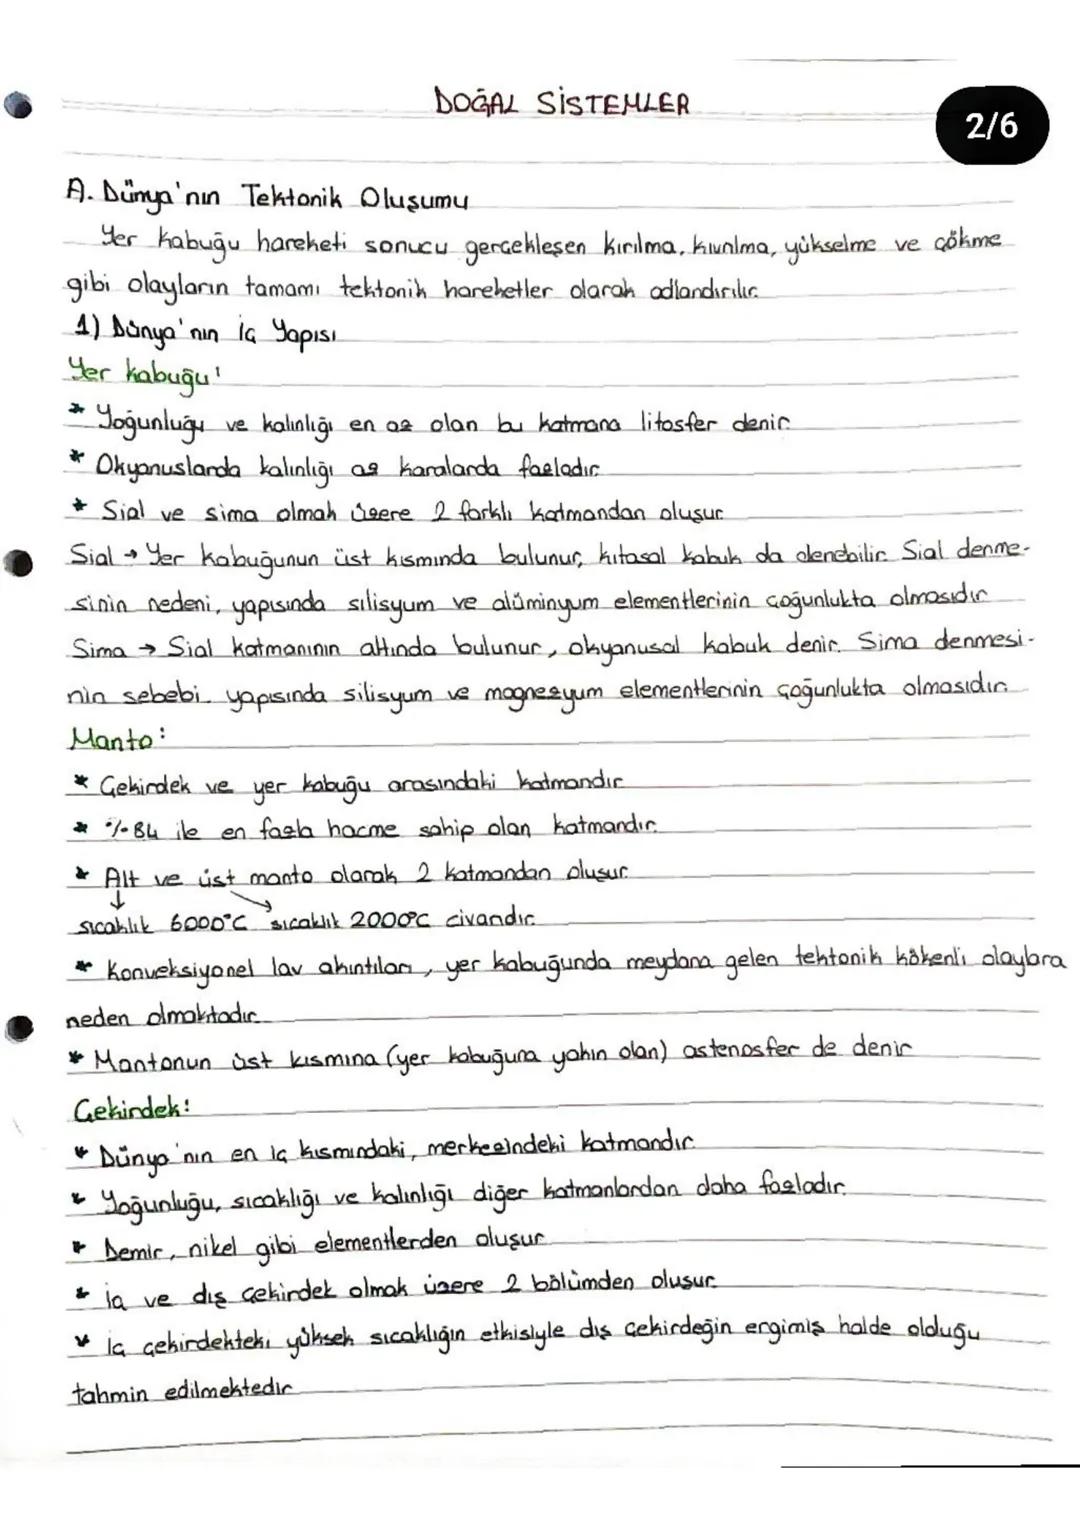 DOĞAL SİSTEMLER
2/6
A. Dünya'nın Tektonik Oluşumu
Yer kabuğu hareketi sonucu gerçekleşen kırılma, kıvrılma, yükselme ve çökme
gibi olayların tamamı tektonik hareketler olarak adlandırılır.
1) Dünya'nın İç Yapısı
Yer kabuğu:
* Yoğunluğu ve kalınlığı en az olan bu katmana litosfer denir.
* Okyanuslarda kalınlığı az karalarda fazladır.
* Sial ve sima olmak üzere 2 farklı katmandan oluşur.
Sial → Yer kabuğunun üst kısmında bulunur, kıtasal kabuk da denebilir. Sial denme-
sinin nedeni, yapısında silisyum ve alüminyum elementlerinin çoğunlukta olmasıdır.
Sima → Sial katmanının altında bulunur, okyanusal kabuk denir. Sima denmesi-
nin sebebi yapısında silisyum ve magnezyum elementlerinin çoğunlukta olmasıdır.
Manto:
* Çekirdek ve yer kabuğu arasındaki katmandır.
* %84 ile en fazla hacme sahip olan katmandır.
* Alt ve üst manto olarak 2 katmandan oluşur.
↓ ↘
sıcaklık 6000°C sıcaklık 2000°C civarıdır.
* Konveksiyonel lav akıntıları, yer kabuğunda meydana gelen tektonik kökenli olaylara
neden olmaktadır.
* Mantonun üst kısmına (yer kabuğuna yakın olan) astenosfer de denir
Çekirdek:
* Dünya'nın en iç kısmındaki, merkezindeki katmandır.
* Yoğunluğu, sıcaklığı ve kalınlığı diğer katmanlardan daha fazladır.
* Demir, nikel gibi elementlerden oluşur
* İç ve dış çekirdek olmak üzere 2 bölümden oluşur.
* İç çekirdekteki yüksek sıcaklığın etkisiyle dış çekirdeğin ergimiş halde olduğu
tahmin edilmektedir